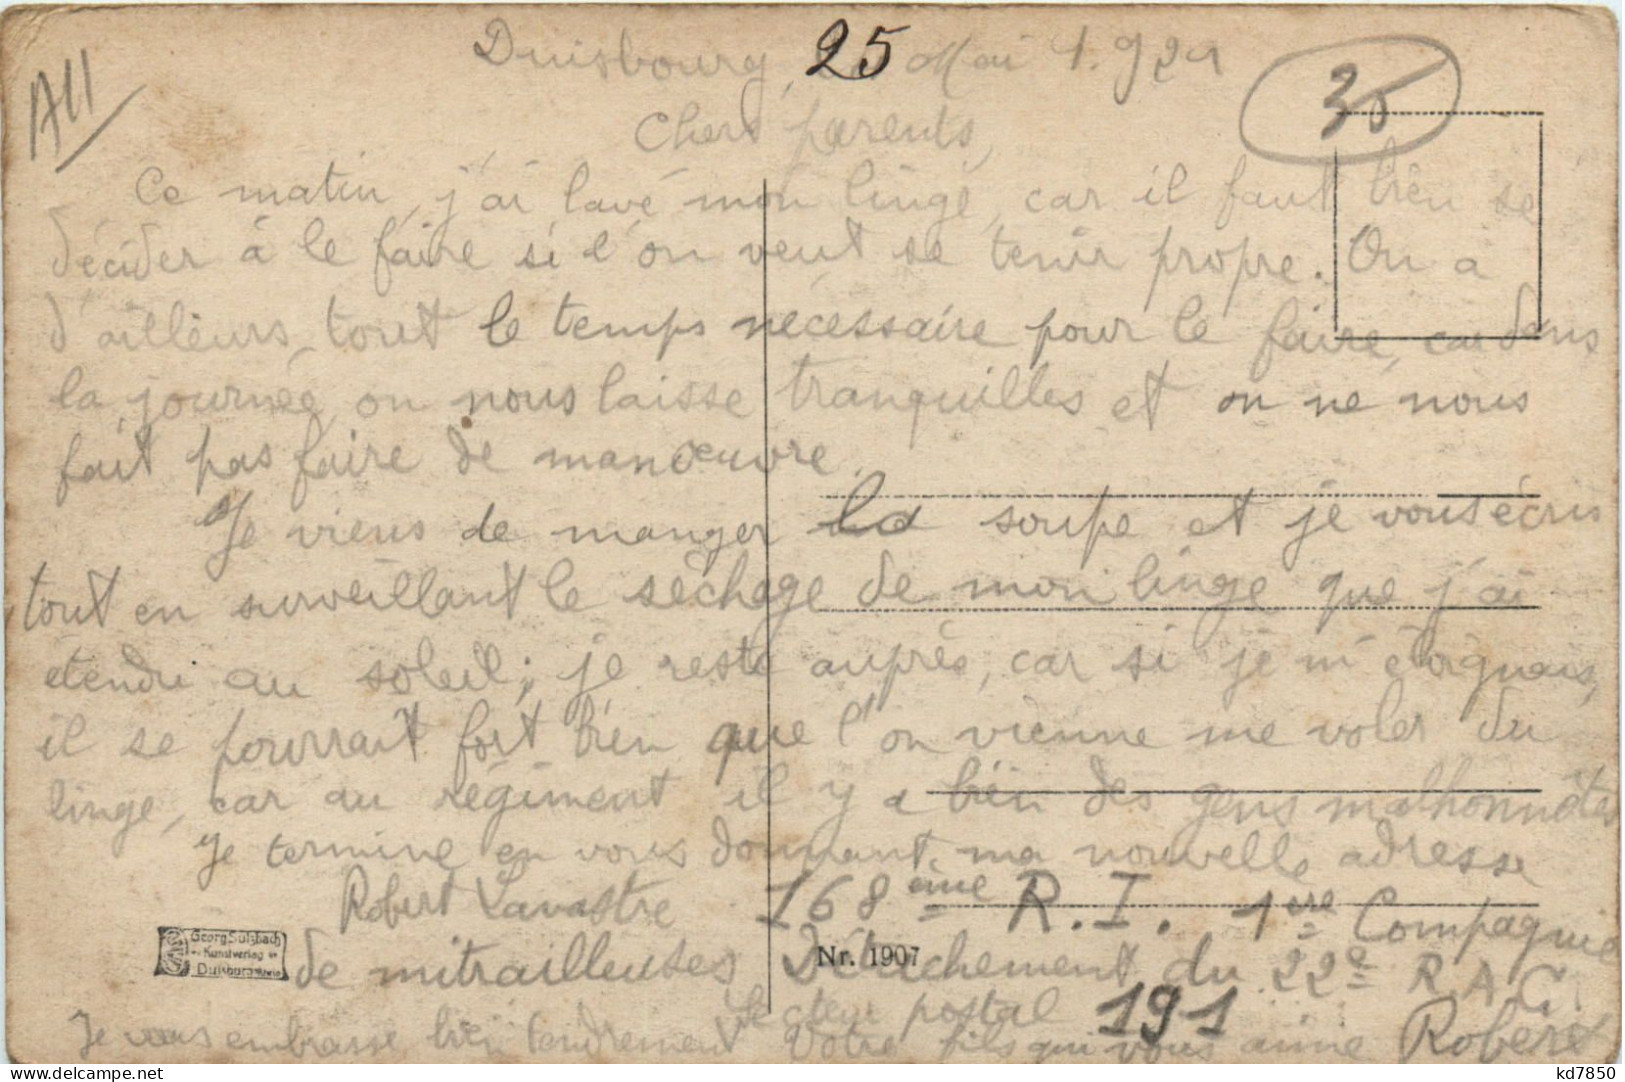 All
Duisbourg, 25 Mai 1.921
35
Chers parents,
Ce matin, j'ai lavé mon linge, car il faut bien se
décider à le faire si l'on veut se tenir propre. On a
d'ailleurs, tout le temps nécessaire pour le faire, car dans
la journée, on nous laisse tranquilles et on ne nous
fait pas faire de manœuvre.
Je viens de manger la soupe et je vous écris
tout en surveillant le séchage de mon linge que j'ai
étendu au soleil; je reste auprès, car si je m'éloignais,
il se pourrait fort bien que l'on vienne me voler du
linge, car au régiment il y a bien des gens malhonnêtes
Je termine en vous donnant ma nouvelle adresse
Robert Lavastre 168ème R.I. 1ère Compagnie
de mitrailleuses Détachement du 22e R.A.C.
Secteur postal 191
Je vous embrasse bien tendrement Votre fils qui vous aime Robert
Georg Sulzbach
Kunstverlag
Duisburg
Nr. 1907
kd7850